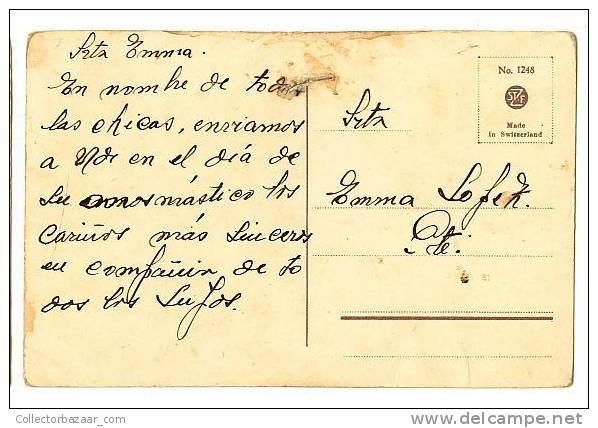 Srta Emma.
En nombre de todas
las chicas, enviamos
a Vd. en el día de
su onomástico los
cariños más sinceros
en compañia de to
dos los suyos.
No. 1248
Made
in Switzerland
Srta
Emma
Pte.
Collectorbazaar_com
delcampe.net